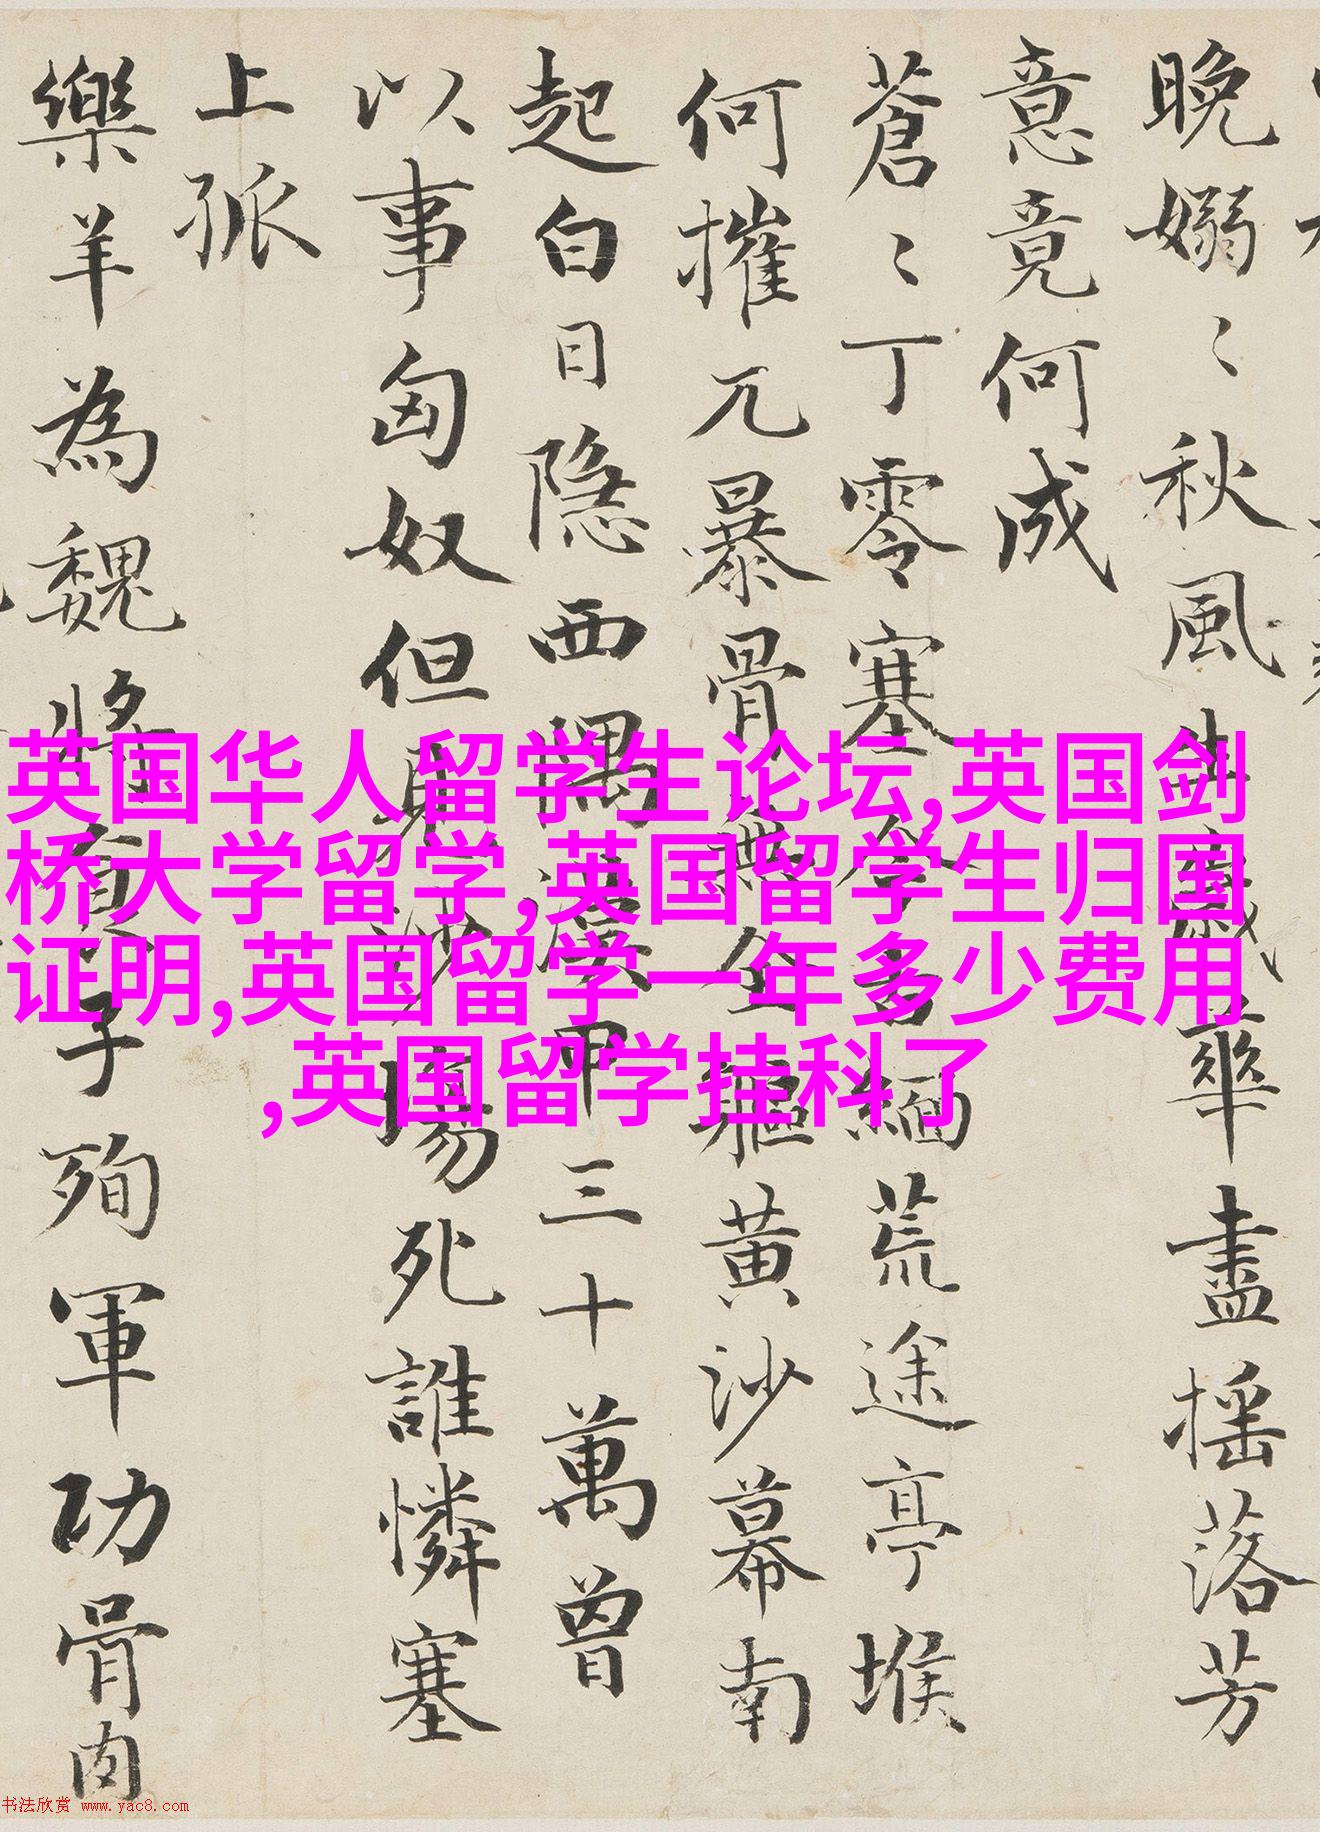 晚嫋〻秋風生歲華盡摇落芳
意竟何成
蒼〻丁零塞今古緬荒途亭堠
何摧兀暴骨無全軀黄沙幕南
起白日隐西隅漢甲三十萬曾
以事匈奴但見沙塲死誰憐塞
上孤
樂羊為魏將食子殉軍功骨肉
英国华人留学生论坛,英国剑
桥大学留学,英国留学生归国
证明,英国留学一年多少费用
,英国留学挂科了
书法欣赏 www.yac8.com